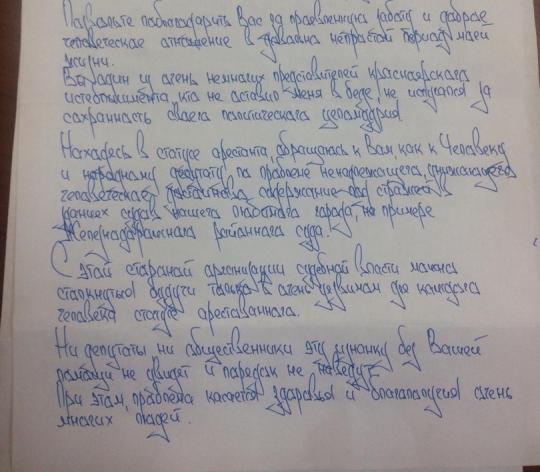 Позвольте поблагодарить Вас за проявленную заботу и доброе
человеческое отношение в довольно непростой период моей
жизни.
Вы один из очень немногих представителей красноярского
истеблишмента, кто не оставил меня в беде, не испугался за
сохранность своего политического целомудрия.
Находясь в статусе арестанта, обращаюсь к Вам, как к Человеку
и народному депутату, по проблеме ненадлежащего, унижающего
человеческое достоинство содержание под стражей в
зданиях судов нашего опального города, на примере
Железнодорожного районного суда.
С этой стороной организации судебной власти можно
столкнуться будучи только в очень уязвимом для каждого
человека статусе арестованного.
Ни депутаты, ни общественники эту изнанку без Вашей
помощи не увидят и порядок не наведут.
При этом, проблема касается здоровья и благополучия очень
многих людей.